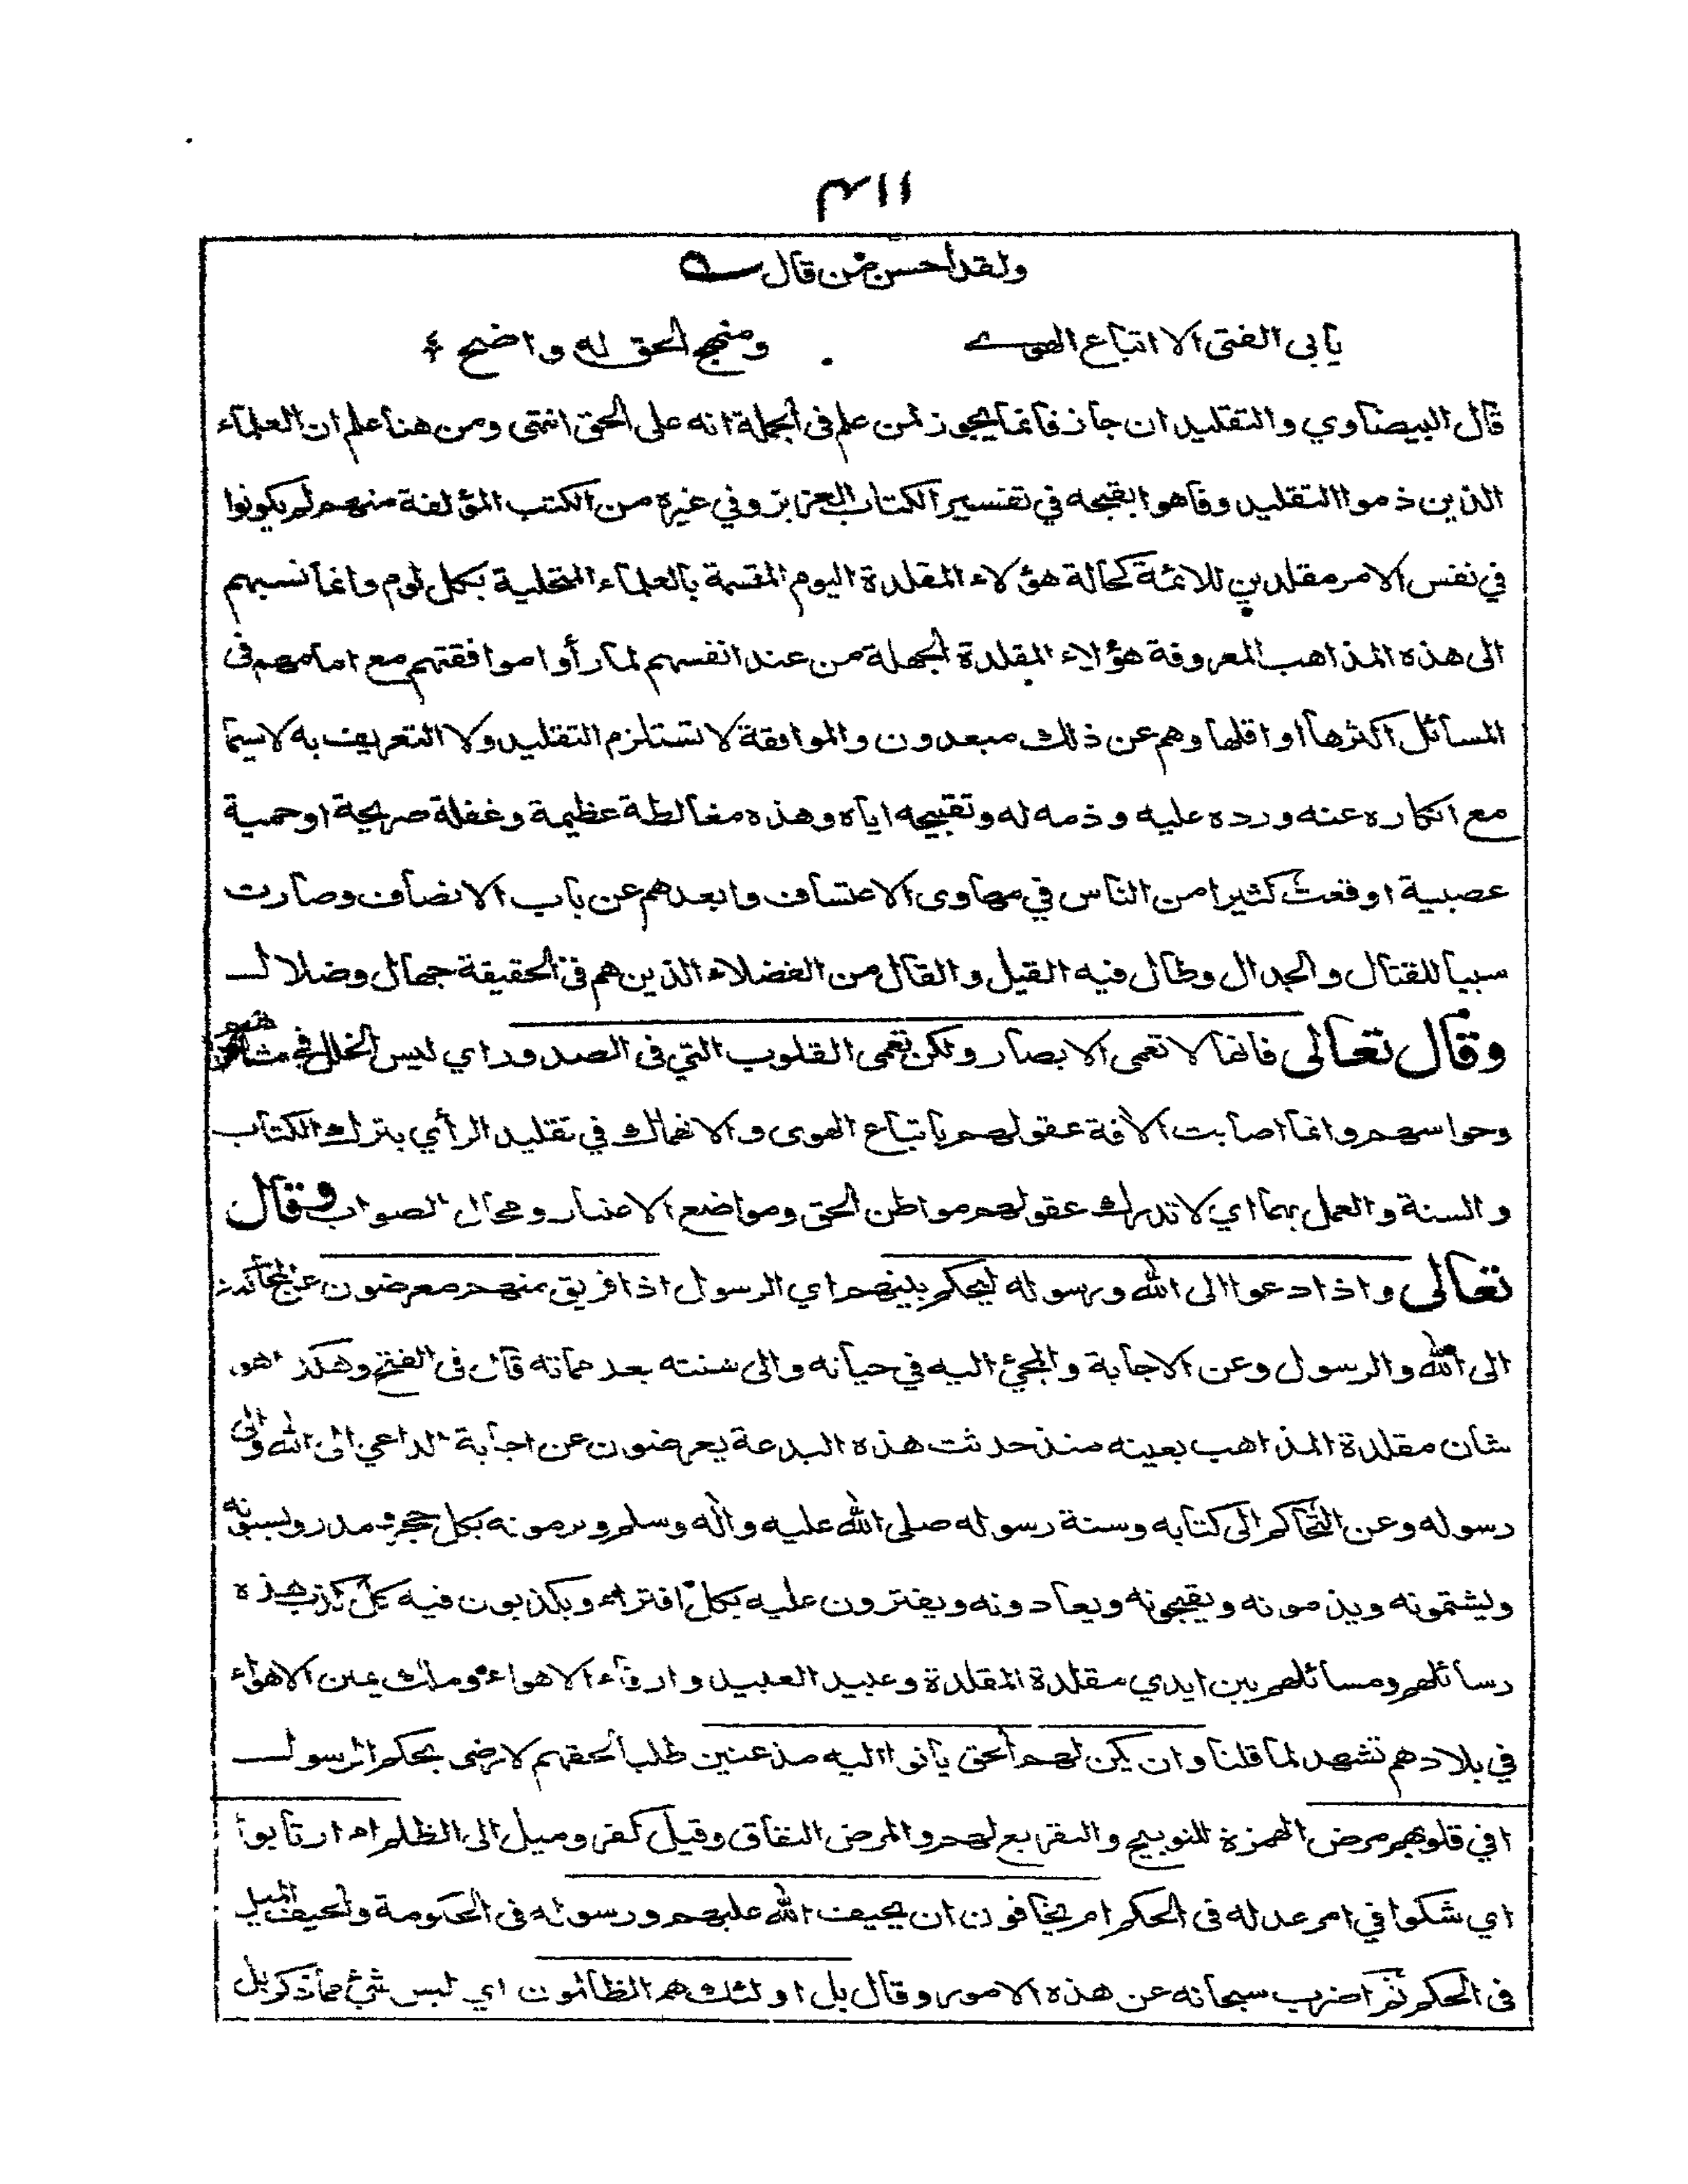 ١١٣
ولقد أحسن من قال
يأبى الفتى الا اتباع الهوى ومنهج الحق له واضح
قال البيضاوي والتقليد ان جاز فانما يجوز لمن علم في الجملة انه على الحق انتهى ومن هنا علم ان العلماء
الذين ذموا التقليد وفاهوا بقبحه في تفسير الكتاب العزيز وفي غيره من الكتب المؤلفة منهم لم يكونوا
في نفس الامر مقلدين للائمة كحالة هؤلاء المقلدة اليوم المتسمة بالعلماء المتحلية بكل لوم وانما نسبهم
الى هذه المذاهب المعروفة هؤلاء المقلدة الجهلة من عند انفسهم لما رأوا موافقتهم مع امامهم في
المسائل اكثرها او اقلها وهم عن ذلك مبعدون والموافقة لا تستلزم التقليد ولا التعريف به لاسيما
مع انكاره عنه ورده عليه وذمه له وتقبيحه اياه وهذه مغالطة عظيمة وغفلة صريحة او حمية
عصبية اوقعت كثيرا من الناس في مهاوى الاعتساف وابعدهم عن باب الانصاف وصارت
سببا للقتال والجدال وطال فيه القيل والقال من الفضلاء الذين هم في الحقيقة جهال وضلال
وقال تعالى فانها لا تعمى الابصار ولكن تعمى القلوب التي في الصدور اي ليس الخلل في مشاعرهم
وحواسهم وانما اصابت الافة عقولهم باتباع الهوى والانهماك في تقليد الرأي بترك الكتاب
والسنة والعمل بهما اي لا تدرك عقولهم مواطن الحق ومواضع الاعتبار ومحال الصواب وقال
تعالى واذا دعوا الى الله ورسوله ليحكم بينهم اي الرسول اذا فريق منهم معرضون عن المحاكمة
الى الله والرسول وعن الاجابة والمجئ اليه في حياته والى سنته بعد مماته قال في الفتح وهكذا هو
شان مقلدة المذاهب بعينه منذ حدثت هذه البدعة يعرضون عن اجابة الداعي الى الله والى
رسوله وعن التحاكم الى كتابه وسنة رسوله صلى الله عليه وآله وسلم ويرمونه بكل حجر ومدر ويسبونه
ويشتمونه ويذمونه ويقبحونه ويعادونه ويفترون عليه بكل افتراء ويكذبون فيه كل كذب هذه
رسائلهم ومسائلهم بين ايدي مقلدة المقلدة وعبيد العبيد وارقاء الاهواء وملك يمين الاهواء
في بلادهم تشهد لما قلنا وان يكن لهم الحق يأتوا اليه مذعنين طلبا لحقهم لا رضى بحكم الرسول
افي قلوبهم مرض الهمزة للتوبيخ والتقريع لهم والمرض النفاق وقيل كفر وميل الى الظلم ام ارتابوا
اي شكوا في امر عدله في الحكم ام يخافون ان يحيف الله عليهم ورسوله في الحكومة والحيف الميل
في الحكم ثم اضرب سبحانه عن هذه الامور وقال بل اولئك هم الظالمون اي ليس شئ مما ذكر بل